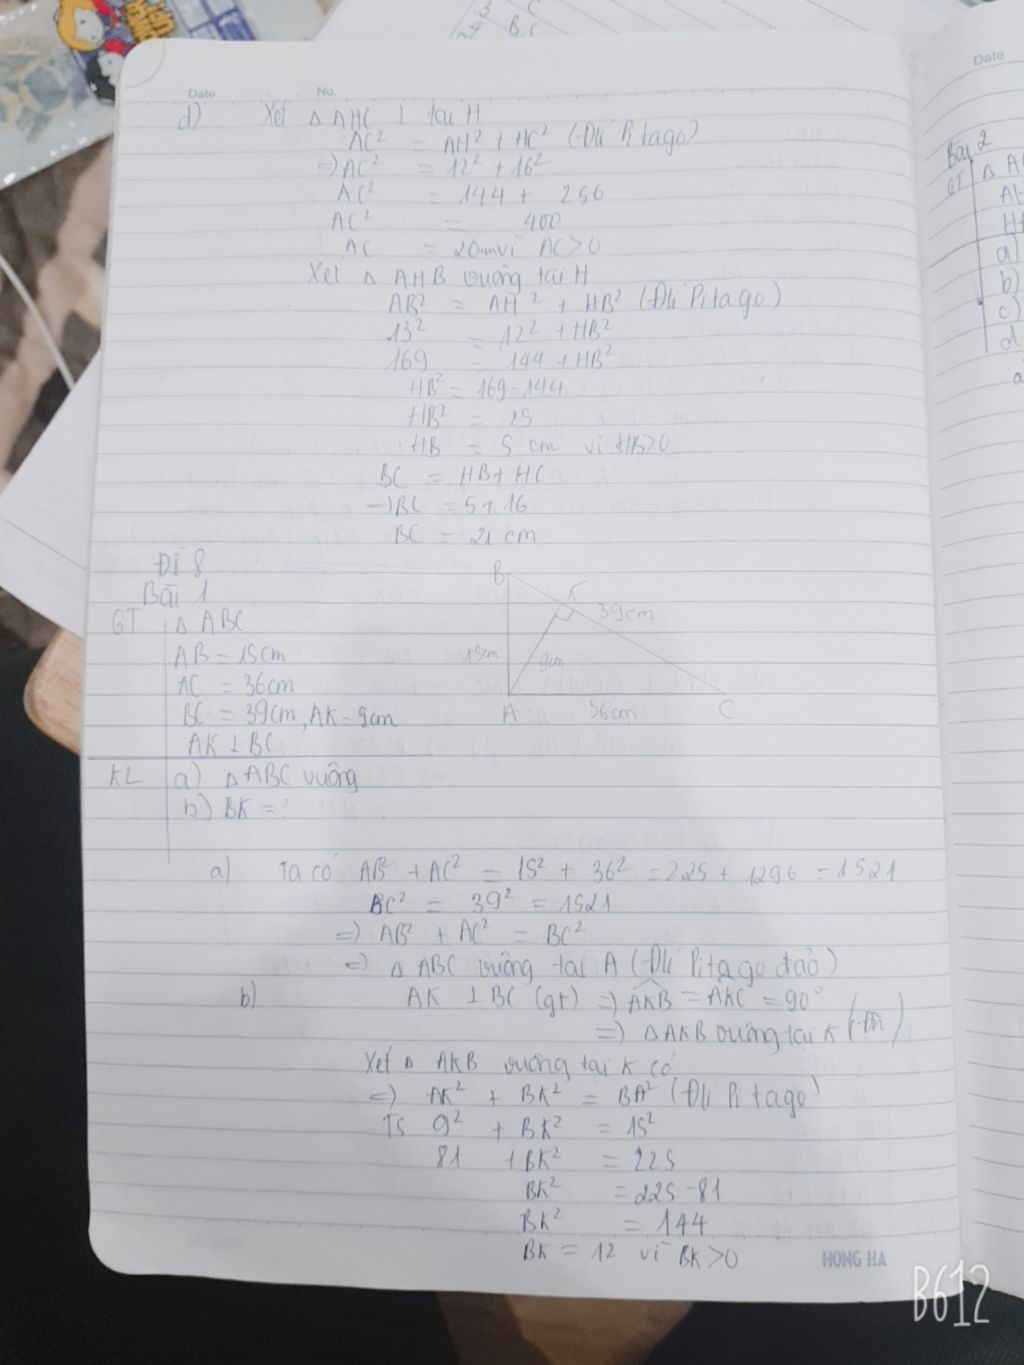 B C
Date No.
d) Xét Δ AHC ⊥ tại H
AC² = AH² + HC² (Đlí Pitago)
=) AC² = 12² + 16²
AC² = 144 + 256
AC² = 400
AC = 20cm vì AC > 0
Xét Δ AHB vuông tại H
AB² = AH² + HB² (Đlí Pitago)
13² = 12² + HB²
169 = 144 + HB²
HB² = 169 - 144
HB² = 25
HB = 5 cm vì HB>0
BC = HB + HC
-) BC = 5 + 16
BC = 21 cm
Đề 8
Bài 1
GT Δ ABC
AB = 15cm
AC = 36cm
BC = 39cm, AK = 9cm
AK ⊥ BC
KL a) Δ ABC vuông
b) BK = ?
B
K
39cm
15cm
9cm
A 36cm C
a) Ta có AB² + AC² = 15² + 36² = 225 + 1296 = 1521
BC² = 39² = 1521
=) AB² + AC² = BC²
=) Δ ABC vuông tại A (Đlí Pitago đảo)
b) AK ⊥ BC (gt) =) AKB = AKC = 90°
=) Δ AKB vuông tại K (đn)
Xét Δ AKB vuông tại K có
=) AK² + BK² = BA² (Đlí Pitago)
TS 9² + BK² = 15²
81 + BK² = 225
BK² = 225 - 81
BK² = 144
BK = 12 vì BK > 0
HONG HA
B612
Date
Bài 2
GT Δ A
a)
b)
c)
d
a